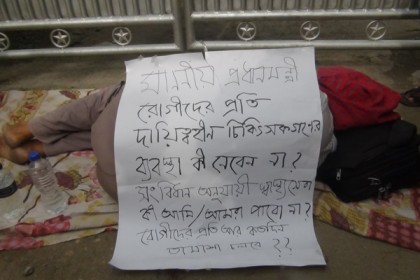 মাননীয় প্রধানমন্ত্রী
রোগীদের প্রতি
দায়িত্বহীন চিকিৎসকগণের
ব্যবস্থা কী নেবেন না?
সংবিধান অনুযায়ী স্বাস্থ্যসেবা
কী আমি/আমরা পাবো না?
রোগীদের প্রতি আর কতদিন
তামাশা চলবে ??